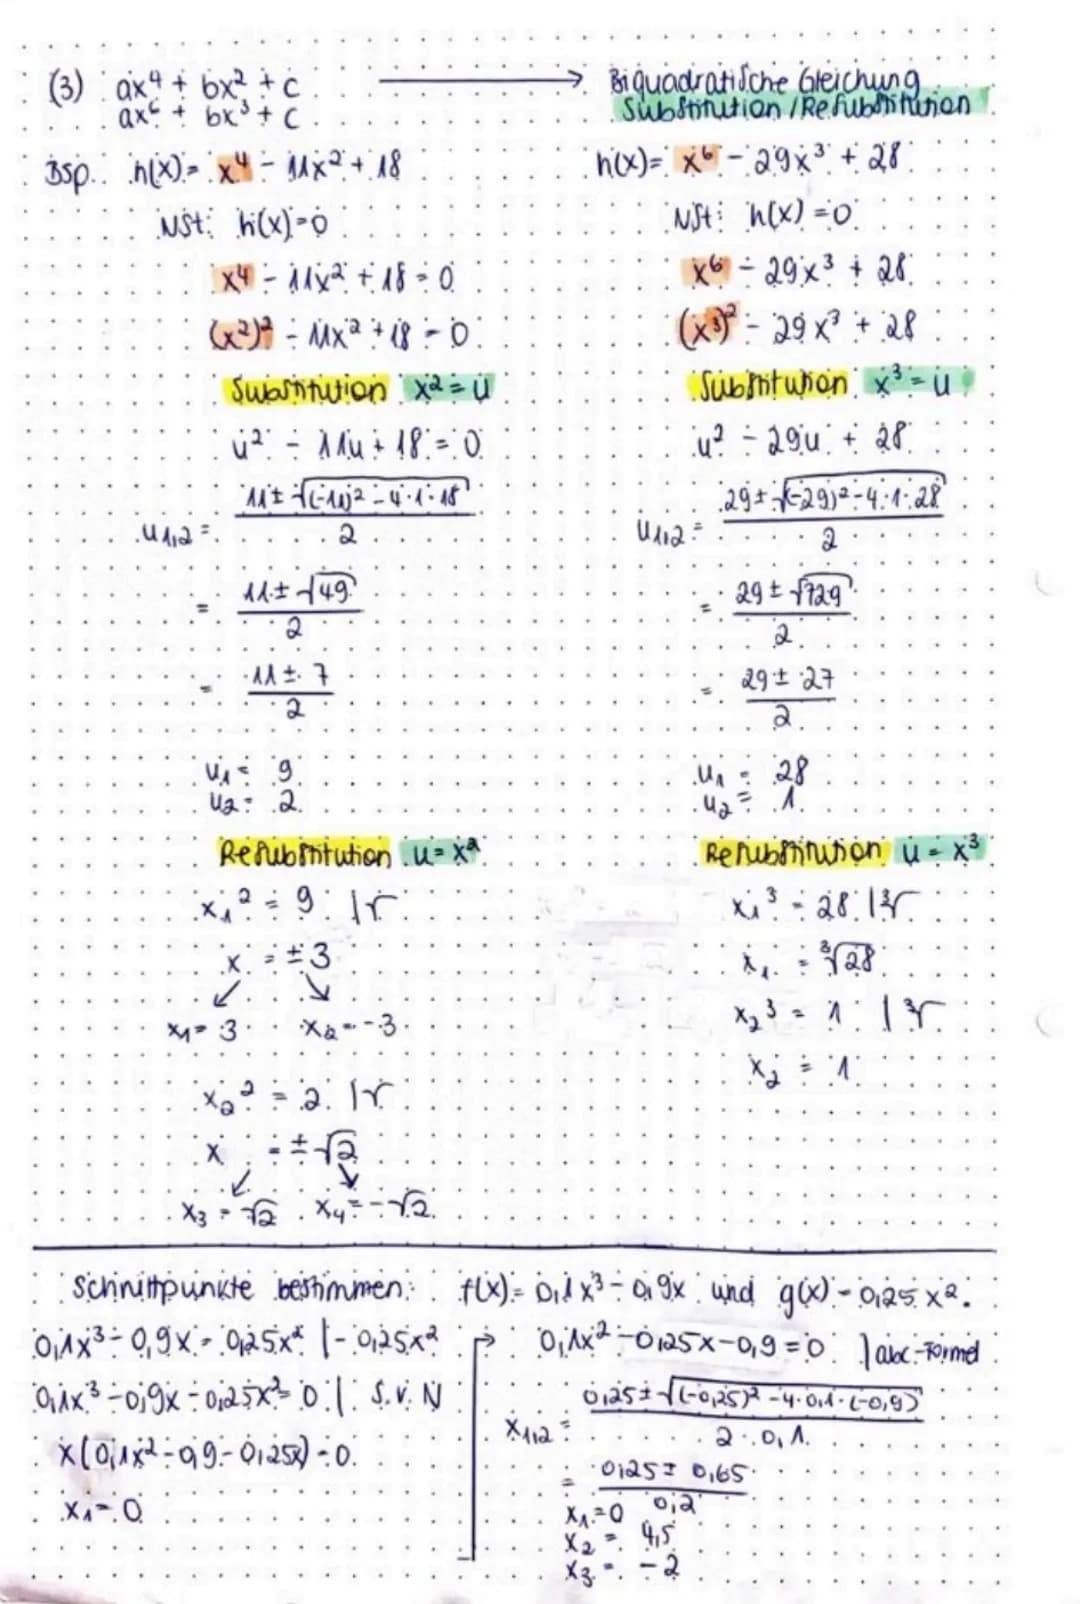 (3) ax⁴ + bx² + c ⟶ Biquadratische Gleichung
ax⁶ + bx³ + c Substitution / Resubstitution
Bsp.: h(x) = x⁴ - 11x² + 18
NSt: h(x) = 0
x⁴ - 11x² + 18 = 0
(x²)² - 11x² + 18 = 0
Substitution x² = u
u² - 11u + 18 = 0
u₁,₂ = (11 ± √((-11)² - 4·1·18)) / 2
= (11 ± √49) / 2
= (11 ± 7) / 2
u₁ = 9
u₂ = 2
Resubstitution u = x²
x₁² = 9 |√
x = ±3
↙ ↘
x₁ = 3 x₂ = -3
x₂² = 2 |√
x = ±√2
↙ ↘
x₃ = √2 x₄ = -√2
h(x) = x⁶ - 29x³ + 28
NSt: h(x) = 0
x⁶ - 29x³ + 28
(x³)² - 29x³ + 28
Substitution x³ = u
u² - 29u + 28
u₁,₂ = (29 ± √((-29)² - 4·1·28)) / 2
= (29 ± √729) / 2
= (29 ± 27) / 2
u₁ = 28
u₂ = 1
Resubstitution u = x³
x₁³ = 28 |∛
x₁ = ∛28
x₂³ = 1 |∛
x₂ = 1
Schnittpunkte bestimmen: f(x) = 0,1x³ - 0,9x und g(x) = 0,25x².
0,1x³ - 0,9x = 0,25x² | - 0,25x²
0,1x³ - 0,9x - 0,25x² = 0 | S.v.N
x(0,1x² - 0,9 - 0,25x) = 0
x₁ = 0
→ 0,1x² - 0,25x - 0,9 = 0 | abc-Formel
x₁,₂ = (0,25 ± √((-0,25)² - 4·0,1·(-0,9))) / 2·0,1
= (0,25 ± 0,65) / 0,2
x₁ = 0
x₂ = 4,5
x₃ = -2